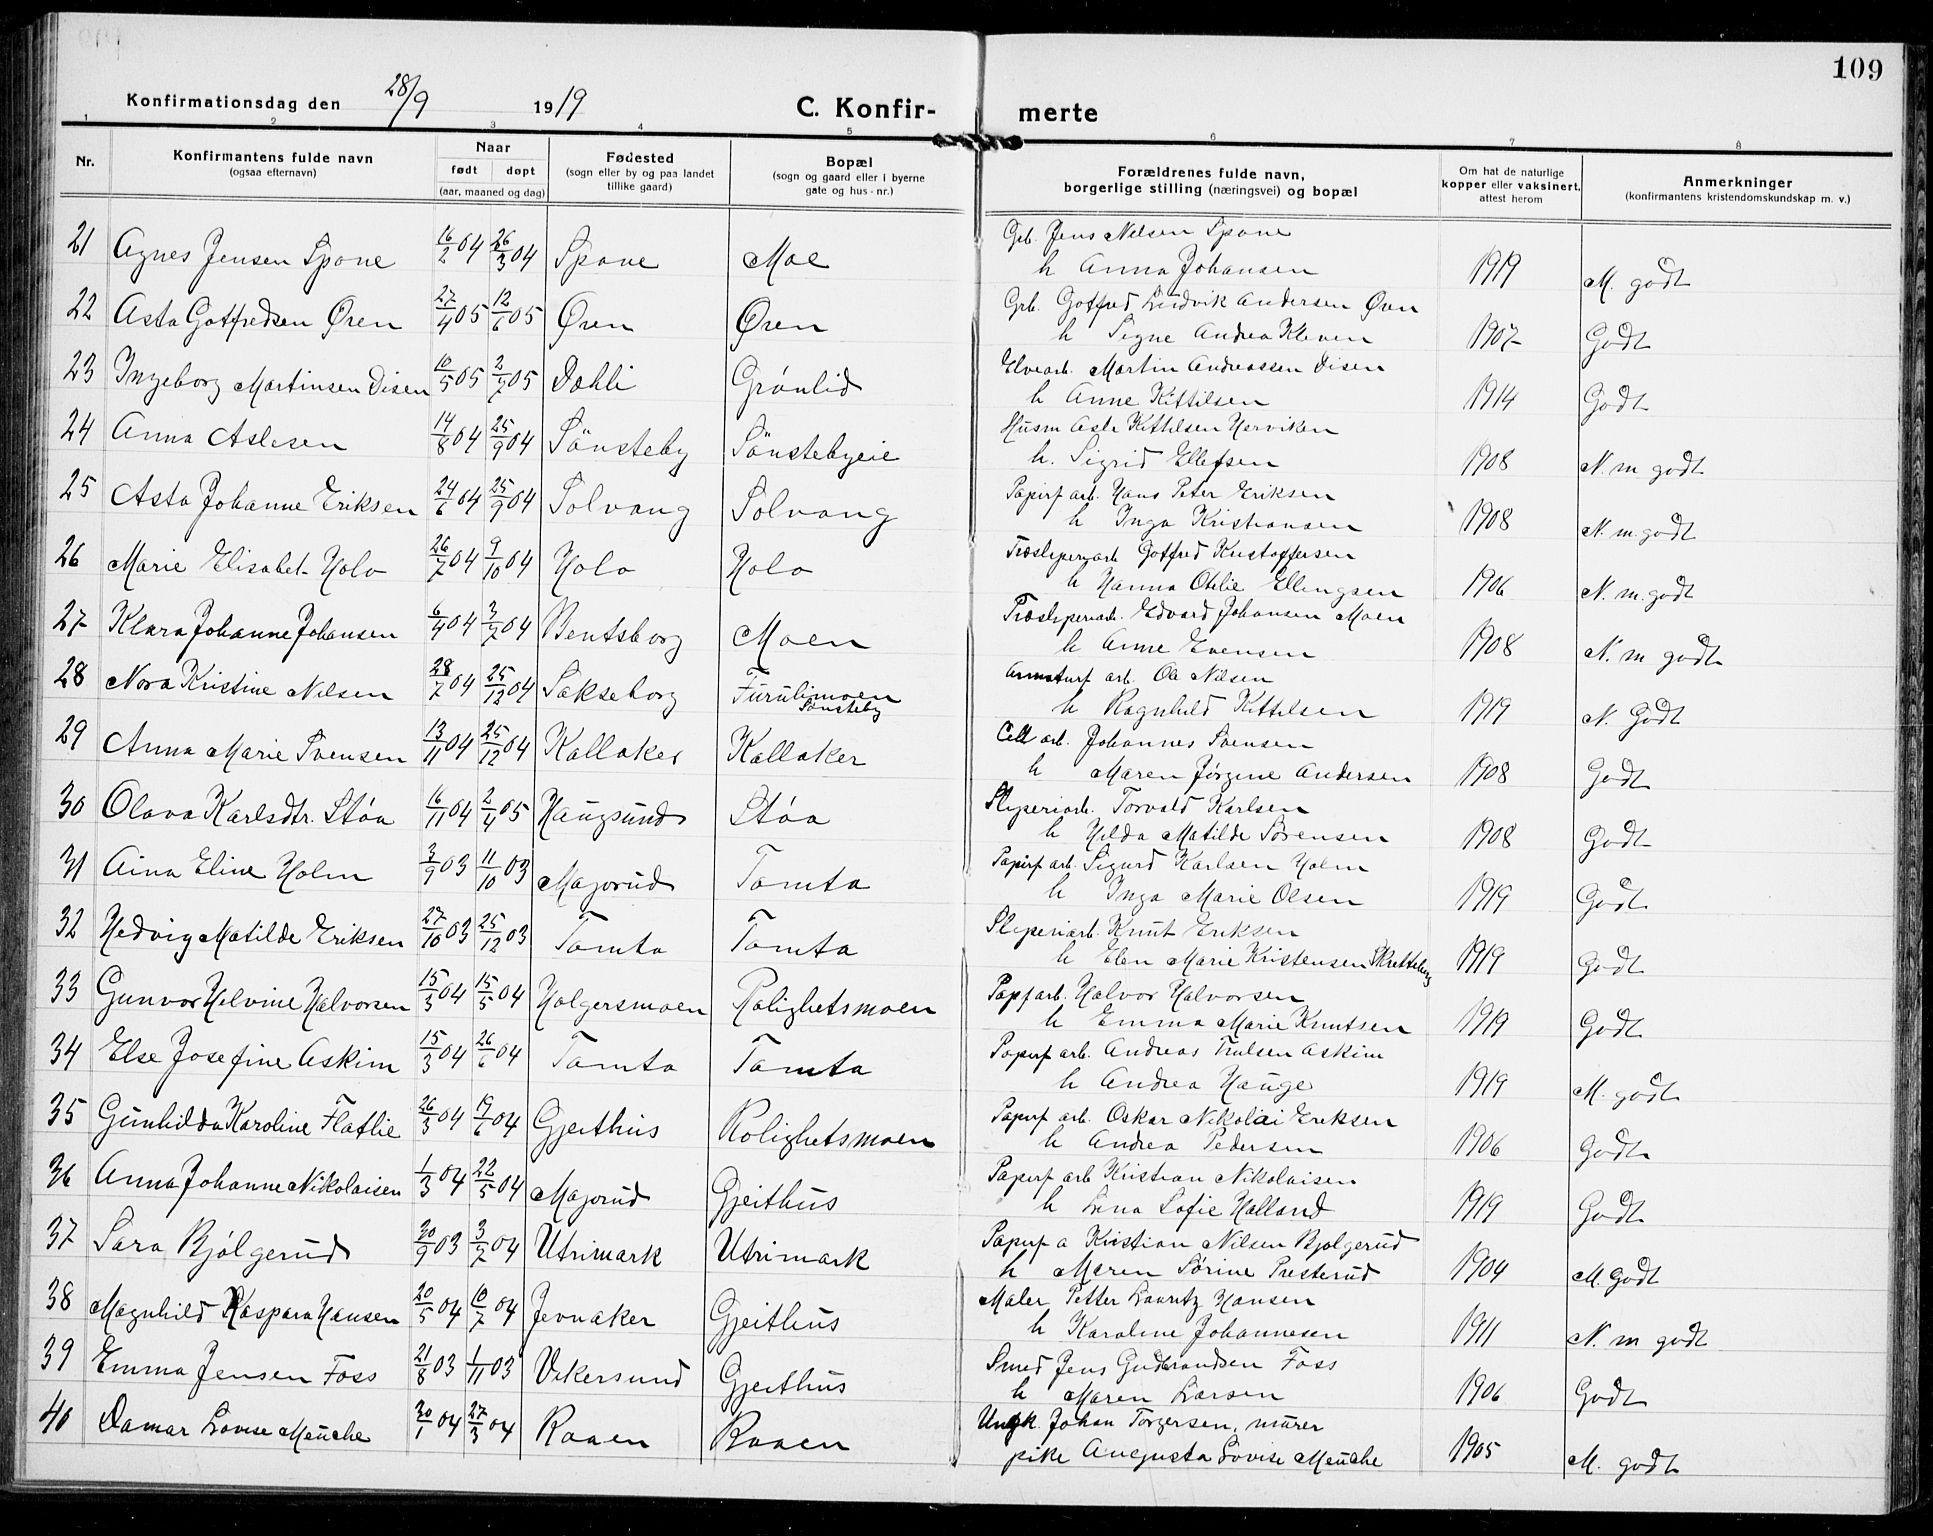 109
Konfirmationsdag den 28/9 1919 C. Konfirmerte
1 2 3 4 5 6 7 8
Nr. Konfirmantens fulde navn (ogsaa efternavn) Naar født døpt (aar, maaned og dag) Fødested (sogn eller by og paa landet tillike gaard) Bopæl (sogn og gaard eller i byerne gate og hus-nr.) Forældrenes fulde navn, borgerlige stilling (næringsvei) og bopæl Om hat de naturlige kopper eller vaksinert, attest herom Anmerkninger (konfirmantens kristendomskundskap m. v.)
21 Agnes Jensen Spone 16/2 04 26/3 04 Spone Moe Grb. Jens Nilsen Spone
h Anna Johansen 1919 M. godt
22 Asta Gotfredsen Øren 27/4 05 12/6 05 Øren Øren Grb. Gotfred Ludvik Andersen Øren
h Signe Andrea Kleven 1907 Godt
23 Ingeborg Martinsen Disen 10/5 05 2/7 05 Dæhli Grønlid Elvearb. Martin Andreassen Disen
h Anne Kittilsen 1914 Godt
24 Anna Aslesen 14/8 04 25/9 04 Sönsteby Sönstebyeie Husm Asle Kittilsen Herviken
h. Sigrid Ellefsen 1908 N. m godt
25 Asta Johanne Eriksen 24/6 04 25/9 04 Solvang Solvang Papirf arb. Hans Peter Eriksen
h Inga Kristiansen 1908 N. m. godt
26 Marie Elisabet Holo 26/7 04 9/10 04 Holo Holo Træsliperiarb Gotfred Kristoffersen
h Hanna Otilie Ellingsen 1906 N. m. godt
27 Klara Johanne Johansen 6/4 04 3/7 04 Bentsborg Moen Træsliperiarb. Edvard Johansen Moen
h Anne Evensen 1908 N. m godt
28 Nora Kristine Nilsen 28/7 04 25/12 04 Sakseborg Furulimoen Sønsteby Armaturf arb. Ole Nilsen
h Ragnhild Kittilsen 1919 N. Godt
29 Anna Marie Svensen 13/11 04 25/12 04 Kallaker Kallaker Cell arb. Johannes Svensen
h Maren Jørgine Andersen 1908 Godt
30 Olava Karlsdtr. Støa 16/11 04 2/4 05 Haugsund Støa Sliperiarb. Torvald Karlsen
h Hilda Matilde Sørensen 1908 Godt
31 Aina Eline Holm 3/9 03 11/10 03 Magorud Tomta Papirf arb. Sigurd Karlsen Holm
h Inga Marie Olsen 1919 Godt
32 Hedvig Matilde Eriksen 27/10 03 25/12 03 Tomta Tomta Sliperiarb. Knut Eriksen
h Elen Marie Kristensen Skretteberg 1919 Godt
33 Gunvor Helvine Halvorsen 15/3 04 15/5 04 Holgersmoen Rolighetsmoen Papf arb. Halvor Halvorsen
h Emma Marie Knutsen 1919 Godt
34 Else Josefine Askim 15/3 04 26/6 04 Tomta Tomta Papirf arb. Andreas Trulsen Askim
h Andrea Hauge 1919 M. godt
35 Gunhilda Karoline Flatlie 26/3 04 19/6 04 Gjeithus Rolighetsmoen Papirf arb. Oskar Nikolai Eriksen
h Andrea Pedersen 1906 Godt
36 Anna Johanne Nikolaisen 1/3 04 22/5 04 Magorud Gjeithus Papirf arb Kristian Nikolaisen
h Lina Sofie Halland 1919 Godt
37 Sara Bjølgerud 30/9 03 3/7 04 Utrimark Utrimark Papirf a Kristian Nilsen Bjølgerud
h Maren Sørine Presterud 1904 M. Godt
38 Magnhild Kaspara Hansen 20/5 04 10/7 04 Jevnaker Gjeithus Maler Petter Lauritz Hansen
h Karoline Johannesen 1911 N m godt
39 Emma Jensen Foss 21/8 03 1/11 03 Vikersund Gjeithus Smed Jens Gudbrandsen Foss
h Maren Larsen 1906 Godt
40 Damar Lovise Meuche 30/1 04 27/3 04 Raaen Raaen Ungk. Johan Torgersen, murer
pike Augusta Lovise Meuche 1905 M. godt